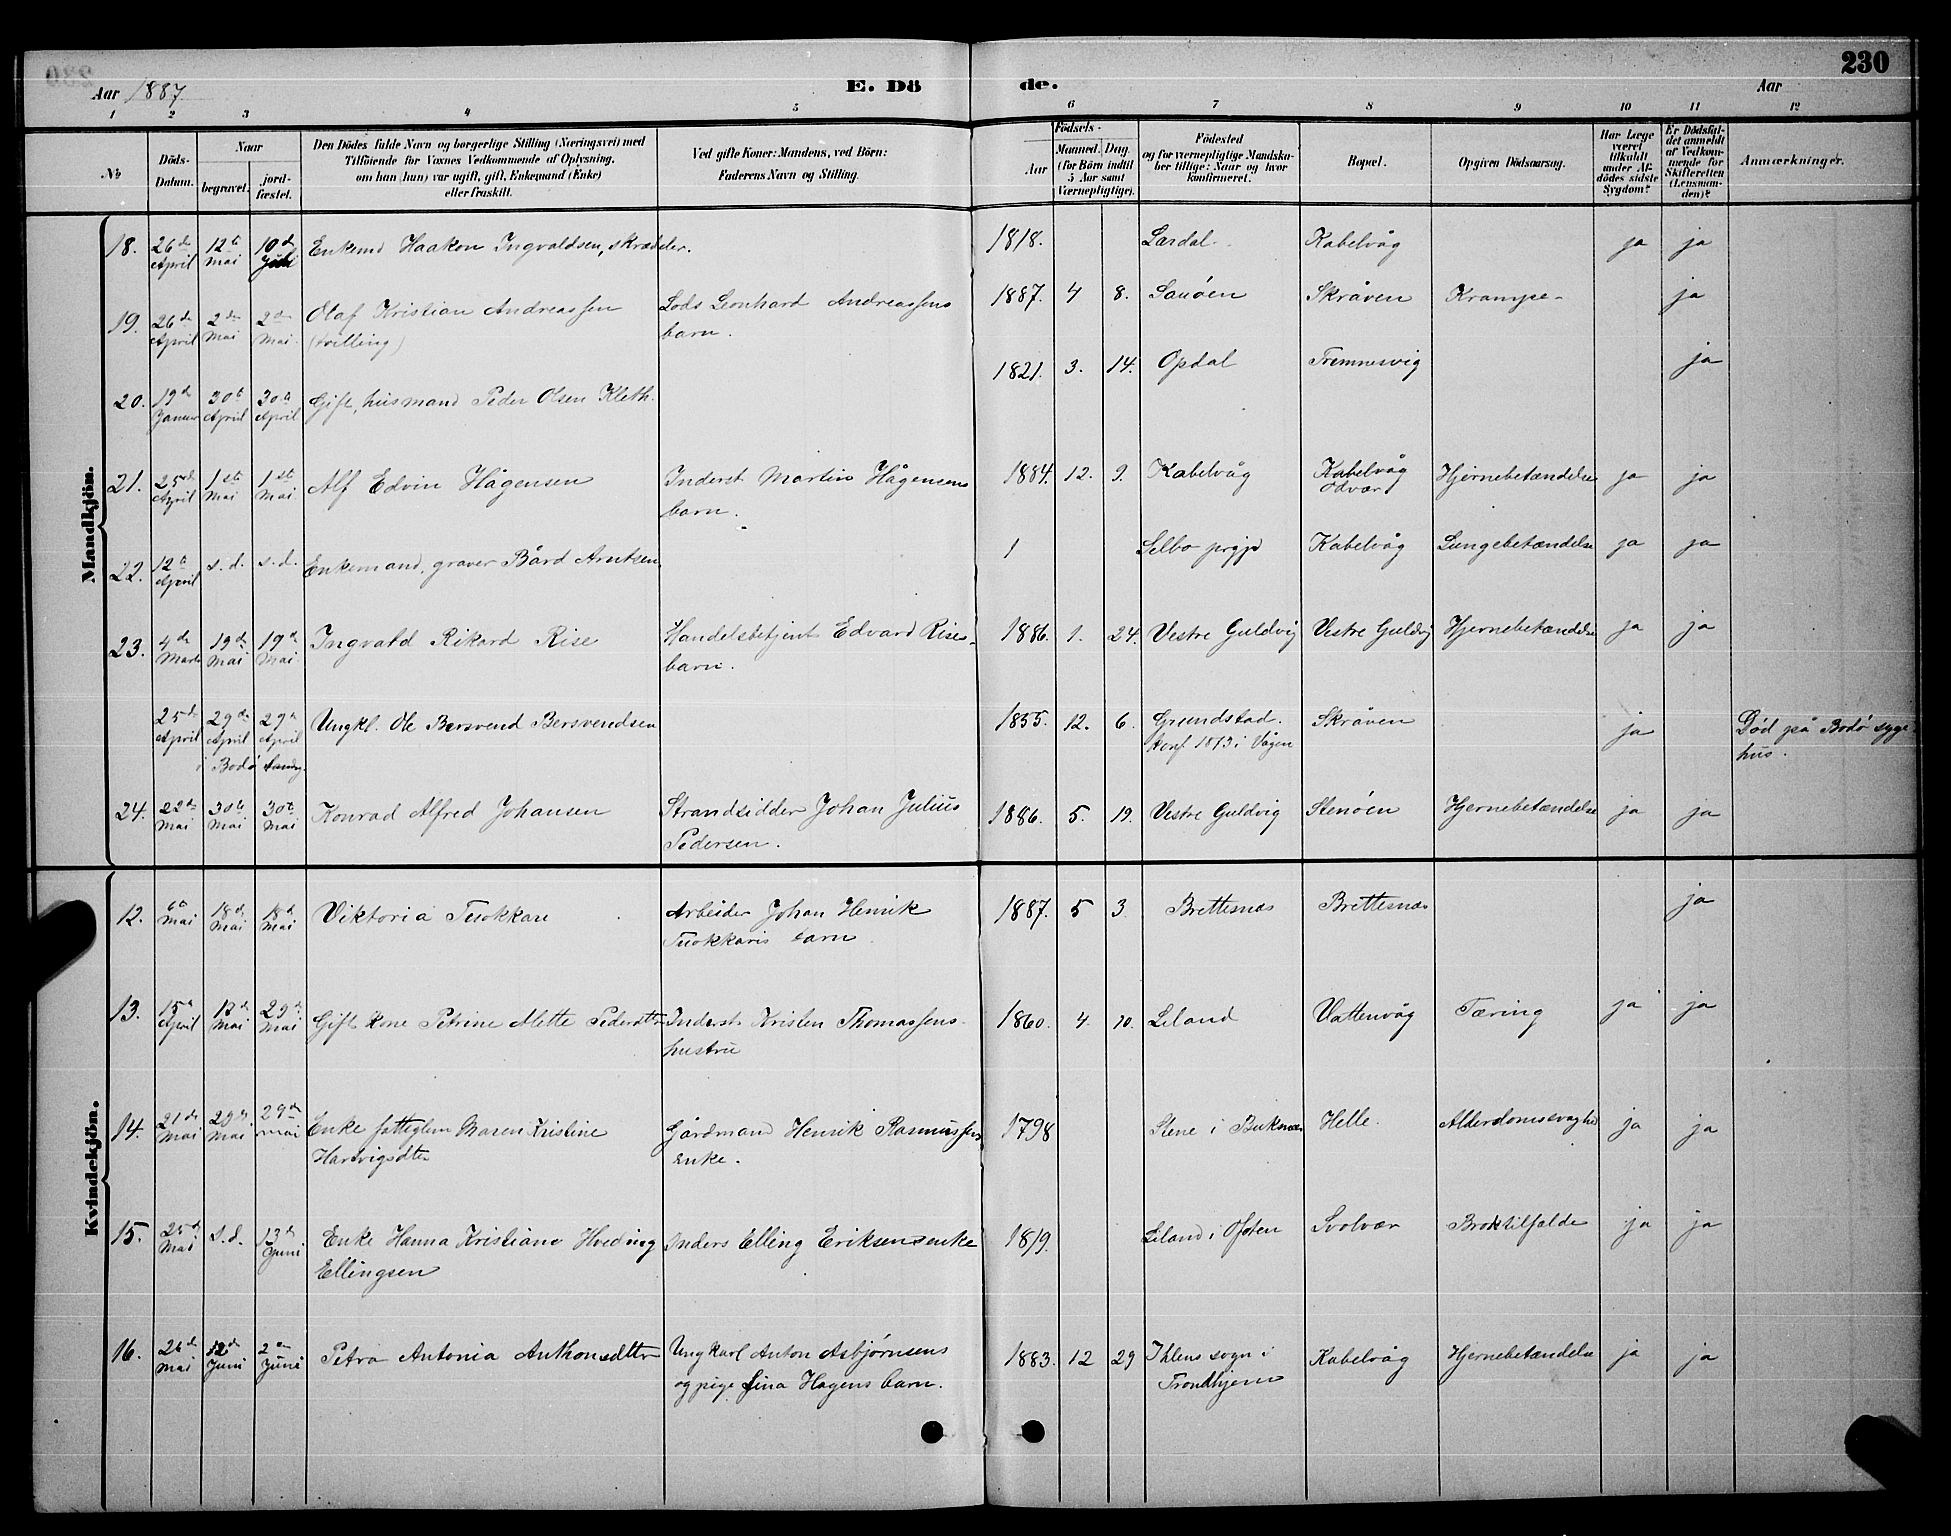 230
Aar 1887. E. Dö de. Aar
1 2 3 4 5 6 7 8 9 10 11 12
No
Döds-Datum.
Naar
begravet.
jordfæstet.
Den Dödes fulde Navn og borgerlige Stilling (Næringsvei) med
Tilföiende for Voxnes Vedkommende af Oplysning,
om han (hun) var ugift, gift, Enkemand (Enke)
eller fraskilt.
Ved gifte Koner: Mandens, ved Börn:
Faderens Navn og Stilling.
Födsels-
Aar Maaned. Dag.
(for Börn indtil
5 Aar samt
Værnepligtige).
Födested
og for værnepligtige Mandska-
ber tillige: Naar og hvor
konfirmeret.
Bopæl.
Opgiven Dödsaarsag.
Har Læge
været
tilkaldt
under Af-
dödes sidste
Sygdom?
Er Dödsfal-
det anmeldt
af Vedkom-
mende for
Skifteretten
(Lensman-
den)?
Anmærkninger.
Mandkjön.
18. 26de April 12te Mai 10de Enkemd Haakon Ingvaldsen, skrædder. 1818. Lardal. Kabelvåg ja ja
19. 26de April 2den Mai 2den Mai Olaf Kristian Andreassen Lods Leonhard Andreassens 1887. 4 8. Sauöen Skråven Krampe. ja
(tvilling) barn.
20. 19de Januar 30te April 30te April Gift, husmand Peder Olsen Kleth. 1821. 3. 14. Opdal Tremnesvig ja
21. 25de April 1ste Mai 1ste Mai Alf Edvin Hågensen Inderst Martin Hågensens 1884. 12. 9. Kabelvåg Kabelvåg Hjernebetændelse ja ja
barn. Odvær
22. 12te April s.d. s.d. Enkemand, graver Bård Arntsen 1 Selbo prgjd Kabelvåg Lungebetændelse ja ja
23. 4de Marts 19de Mai 19de Mai Ingvald Rikard Rise Handelsbetjent Edvard Rises 1886. 1. 24. Vestre Guldvig Vestre Guldvig Hjernebetændelse ja ja
barn.
25de April 29de April 29de April Ungkl. Ole Bersvend Bersvendsen 1855. 12. 6. Grundstad. Skråven ja Död på Bodö syge-
i Bodö konf. 1873 i Vågen hus.
24. 22de Mai 30te Mai 30te Mai Konrad Alfred Johansen Strandsidder Johan Julius 1886. 5. 19. Vestre Guldvig Stenöen Hjernebetændelse ja ja
Pedersen.
Kvindekjön.
12. 6te Mai 18de Mai 18de Mai Viktoria Tuokkari Arbeider Johan Henrik 1887. 5 3. Brettesnæs Brettesnæs ja
Tuokkaris barn
13. 15de April 18de Mai 29de Mai Gift kone Petrine Mette Pedersdtr Inderst Kristen Thomassens 1860. 4. 10. Liland Vattenvåg Tæring ja ja
hustru
14. 21de Mai 29de Mai 29de Mai Enke fattiglem Maren Kristine Gårdmand Henrik Rasmussens 1798 Stene i Buksnæs Helle. Alderdomssvaghed ja ja
Hartvigsdtr enke.
15. 25de Mai s.d. 13de Juni Enke Hanna Kristiane Hveding Inders Elling Eriksens enke 1819. Liland i Ofoten Svolvær Broktilfælde ja ja
Ellingsen
16. 26de Mai 2den Juni 2den Juni Petra Antonia Anthonsdtr Ungkarl Anton Asbjørnsens 1883. 12 29 Ihlens sogn i Kabelvåg Hjernebetændelse ja ja
og pige Lina Hagens barn. Trondhjem